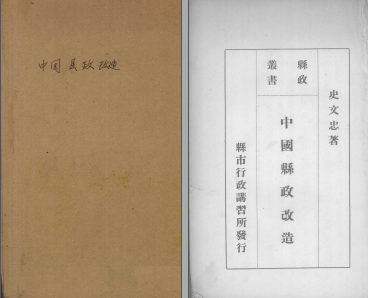 中国县政改造
史文忠著
縣政
叢書
中國縣政改造
縣市行政講習所發行